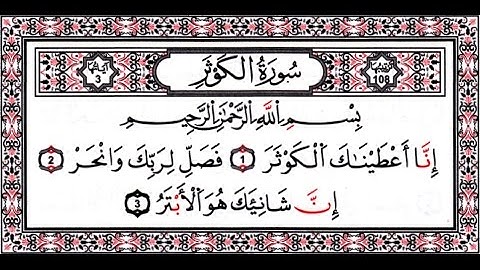 آياتها 3 سورة الكوثر ترتيبها 108
بسم الله الرحمن الرحيم
إنا أعطينٰك الكوثر 1 فصل لربك وانحر 2
إن شانئك هو الأبتر 3